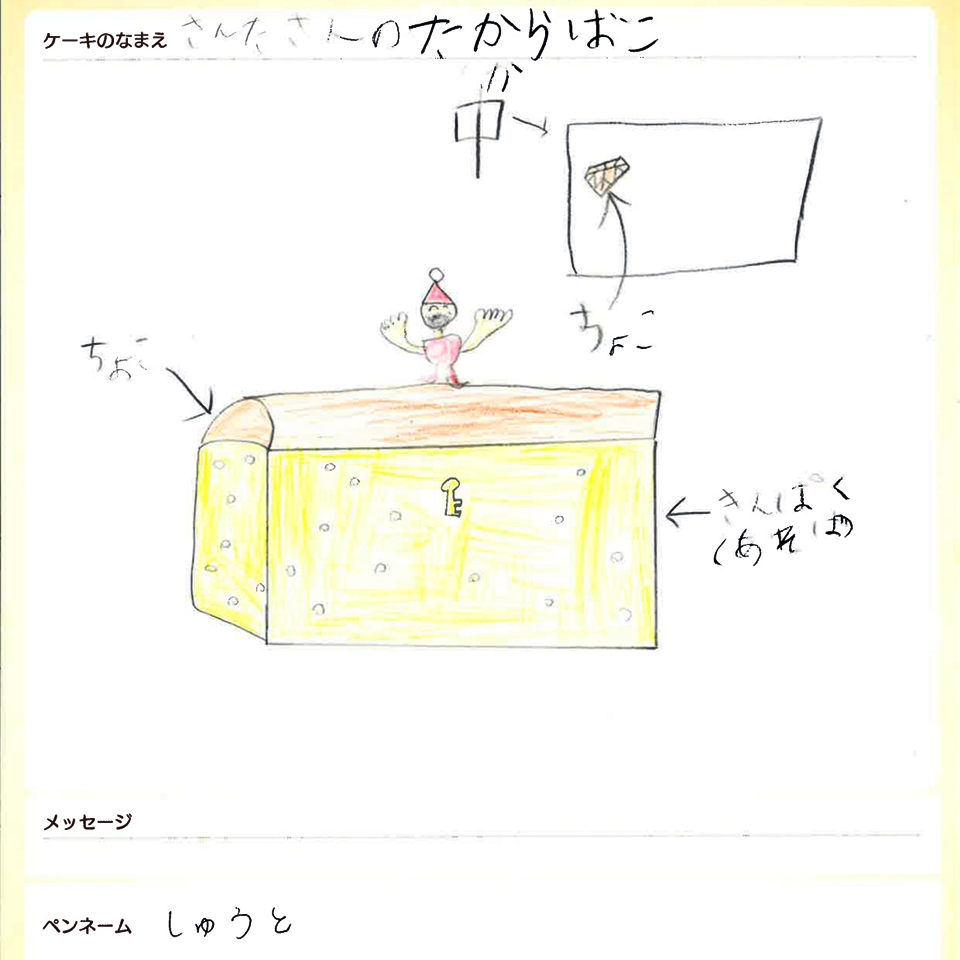 ケーキのなまえ さんたさんのたからばこ
中
ちょこ
ちょこ
きんぱく
メッセージ
ペンネーム しゅうと